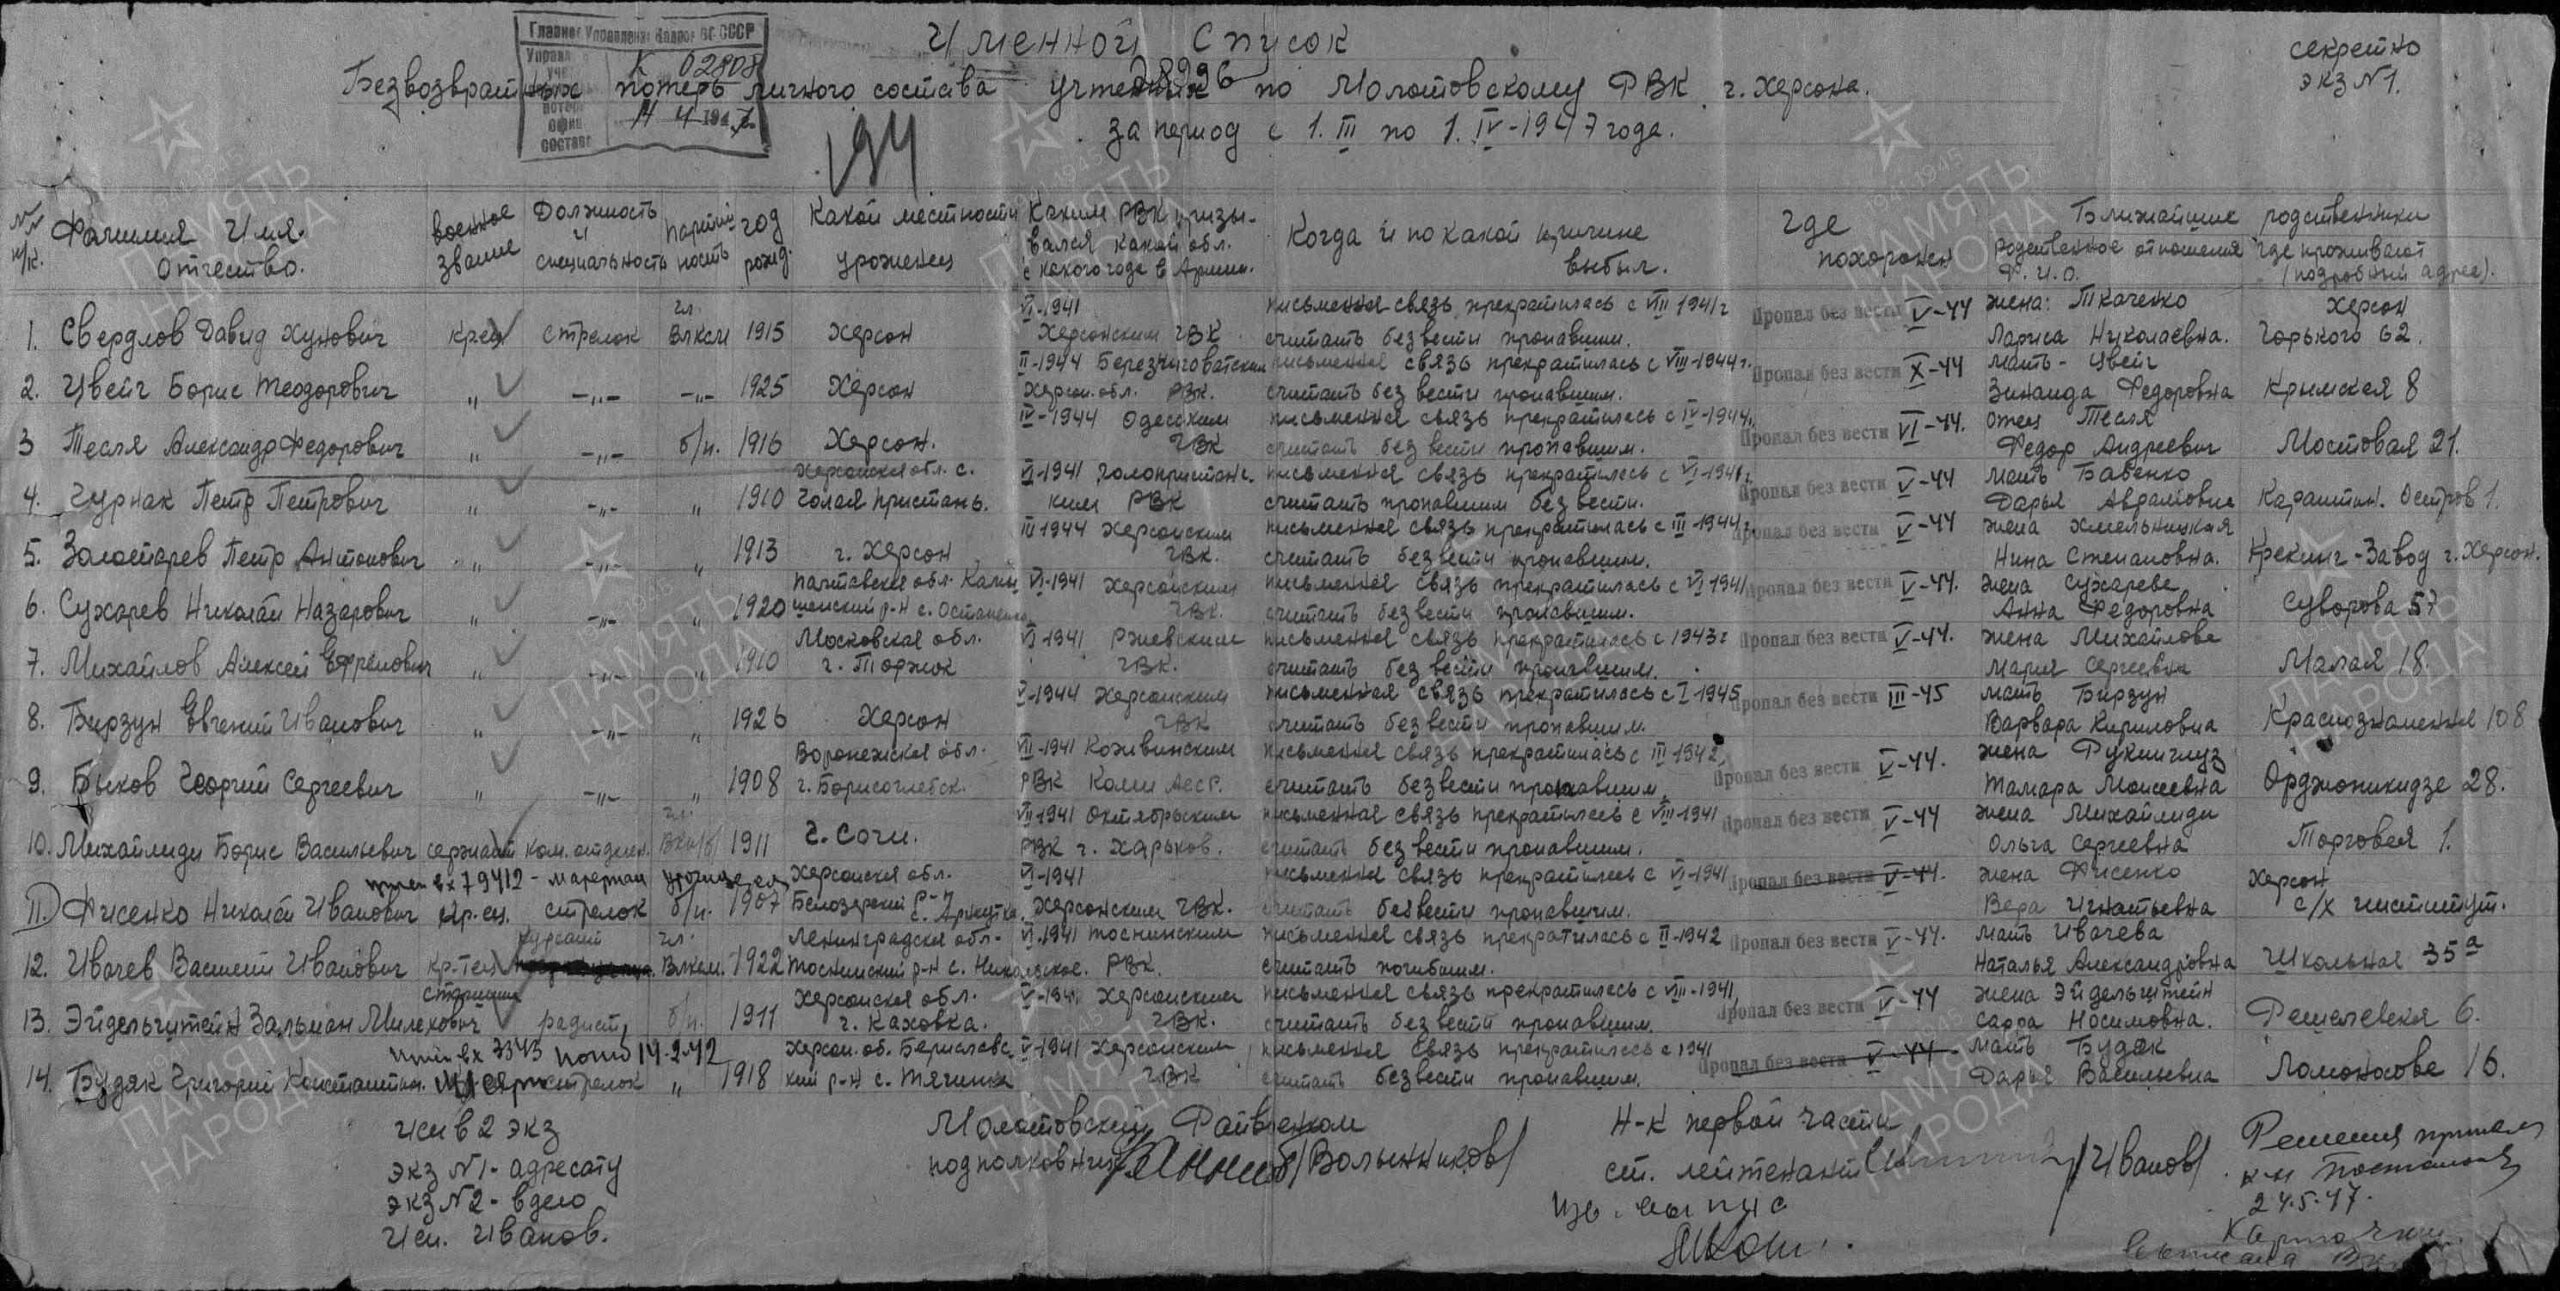 Именной Список
секретно
экз N 1.
Главное Управление Кадров ВС СССР
К 02808
Безвозвратных потерь личного состава учтенных по Молотовскому РВК г. Херсона.
за период с 1. III по 1. IV-1947 года.
194
NN п/п. Фамилия Имя. Отчество.
военное звание
Должность и специальность
партийность
год рожд.
Какой местности уроженец
Каким РВК призывался какой обл. с какого года в Армии.
Когда и по какой причине выбыл.
Где похоронен
Ближайшие родственники
родственное отношение Ф.И.О.
где проживают (подробный адрес).
1. Свердлов Давид Хунович кр-ец стрелок чл. Влксм 1915 Херсон VI-1941 Херсонским ГВК письменная связь прекратилась с VIII 1941г считать без вести пропавшим. Пропал без вести V-44 жена: Ткаченко Лариса Николаевна. Херсон Горького 62.
2. Цвейг Борис Теодорович „ -„- -„- 1925 Херсон II-1944 Березниговатским Херсон. обл. РВК. письменная связь прекратилась с VIII-1944г. считать без вести пропавшим. Пропал без вести X-44 мать - Цвейг Зинаида Федоровна Крымская 8
3 Тесля Александр Федорович „ -„- б/п. 1916 Херсон. IV-1944 Одесским ГВК письменная связь прекратилась с IV-1944г. считать без вести пропавшим. Пропал без вести VI-44. отец Тесля Федор Андреевич Мостовая 21.
4. Гурнак Петр Петрович „ -„- „ 1910 Херсонская обл. с. Голая Пристань. VI-1941 Голопристанским РВК письменная связь прекратилась с VI-1941г. считать пропавшим без вести. Пропал без вести V-44 мать Бабенко Дарья Авдамовна Карантин. Остров 1.
5. Золотарев Петр Антонович „ -„- „ 1913 г. Херсон III 1944 Херсонским ГВК. письменная связь прекратилась с III-1944г. считать без вести пропавшим. Пропал без вести V-44 жена Хмельницкая Нина Степановна. Крекинг-Завод г. Херсон.
6. Сухарев Николай Назарович „ -„- „ 1920 Полтавская обл. р-н с. VI-1941 Херсонским ГВК. письменная связь прекратилась с VI 1941 считать без вести пропавшим. Пропал без вести V-44. жена Сухарева Анна Федоровна Суворова 57
7. Михайлов Алексей Ефремович „ -„- „ 1910 Московская обл. г. Торжок VI-1941 Ржевским ГВК. письменная связь прекратилась с 1943г считать без вести пропавшим. Пропал без вести V-44. жена Михайлова Мария Сергеевна Малая 18.
8. Бирзун Евгений Иванович „ -„- „ 1926 Херсон V-1944 Херсонским ГВК письменная связь прекратилась с I-1945 считать без вести пропавшим. Пропал без вести III-45 мать Бирзун Варвара Кириловна Краснознаменная 108
9. Быков Георгий Сергеевич „ -„- „ 1908 Воронежская обл. г. Борисоглебск. VII-1941 Кожвинским РВК Коми Асср. письменная связь прекратилась с III 1942, считать без вести пропавшим. Пропал без вести V-44. жена Тамара Моисеевна Орджоникидзе 28.
10. Михайлиди Борис Васильевич сержант ком. отделен. чл. Вкп/б/ 1911 г. Сочи. VII-1941 Октябрьским РВК г. Харьков. письменная связь прекратилась с VIII-1941 считать без вести пропавшим. Пропал без вести V-44 жена Михайлиди Ольга Сергеевна Торговая 1.
вх 79412 - материал
11. Фисенко Николай Иванович кр-ец. стрелок б/п. 1907 Херсонская обл. Белозерский р-н VI-1941 Херсонским ГВК. письменная связь прекратилась с VI-1941 считать без вести пропавшим. Пропал без вести V-44. жена Фисенко Вера Игнатьевна Херсон с/х институт.
12. Ивачев Василий Иванович кр-ец курсант чл. Влксм. 1922 Ленинградская обл. Тоснинский р-н с. Никольское. VI-1941 Тоснинским РВК. письменная связь прекратилась с II-1942 считать погибшим. Пропал без вести V-44. мать Ивачева Наталья Александровна Школьная 35а
13. Эйдельштейн Зальман Милехович старшина радист, б/п. 1911 Херсонская обл. г. Каховка. V-1941 Херсонским ГВК. письменная связь прекратилась с VIII-1941 считать без вести пропавшим. Пропал без вести V-44 жена Эйдельштейн Сарра Носимовна. Решелевская 6.
вх 7343 14-2-42
14. Будяк Григорий Константин. стрелок „ 1918 Херсон. об. Бериславский р-н с. Тягинка V-1941 Херсонским ГВК письменная связь прекратилась с 1941 считать без вести пропавшим. Пропал без вести V-44 мать Будяк Дарья Васильевна Ломоносова 16.
исп в 2 экз
экз N1 - адресату
экз N2 - в дело
Исп. Иванов.
Молотовский Райвоенком
подполковник /Волынников/
Н-к первой части
ст. лейтенант /Иванов/
Решения принял
к-н
24.5.47.